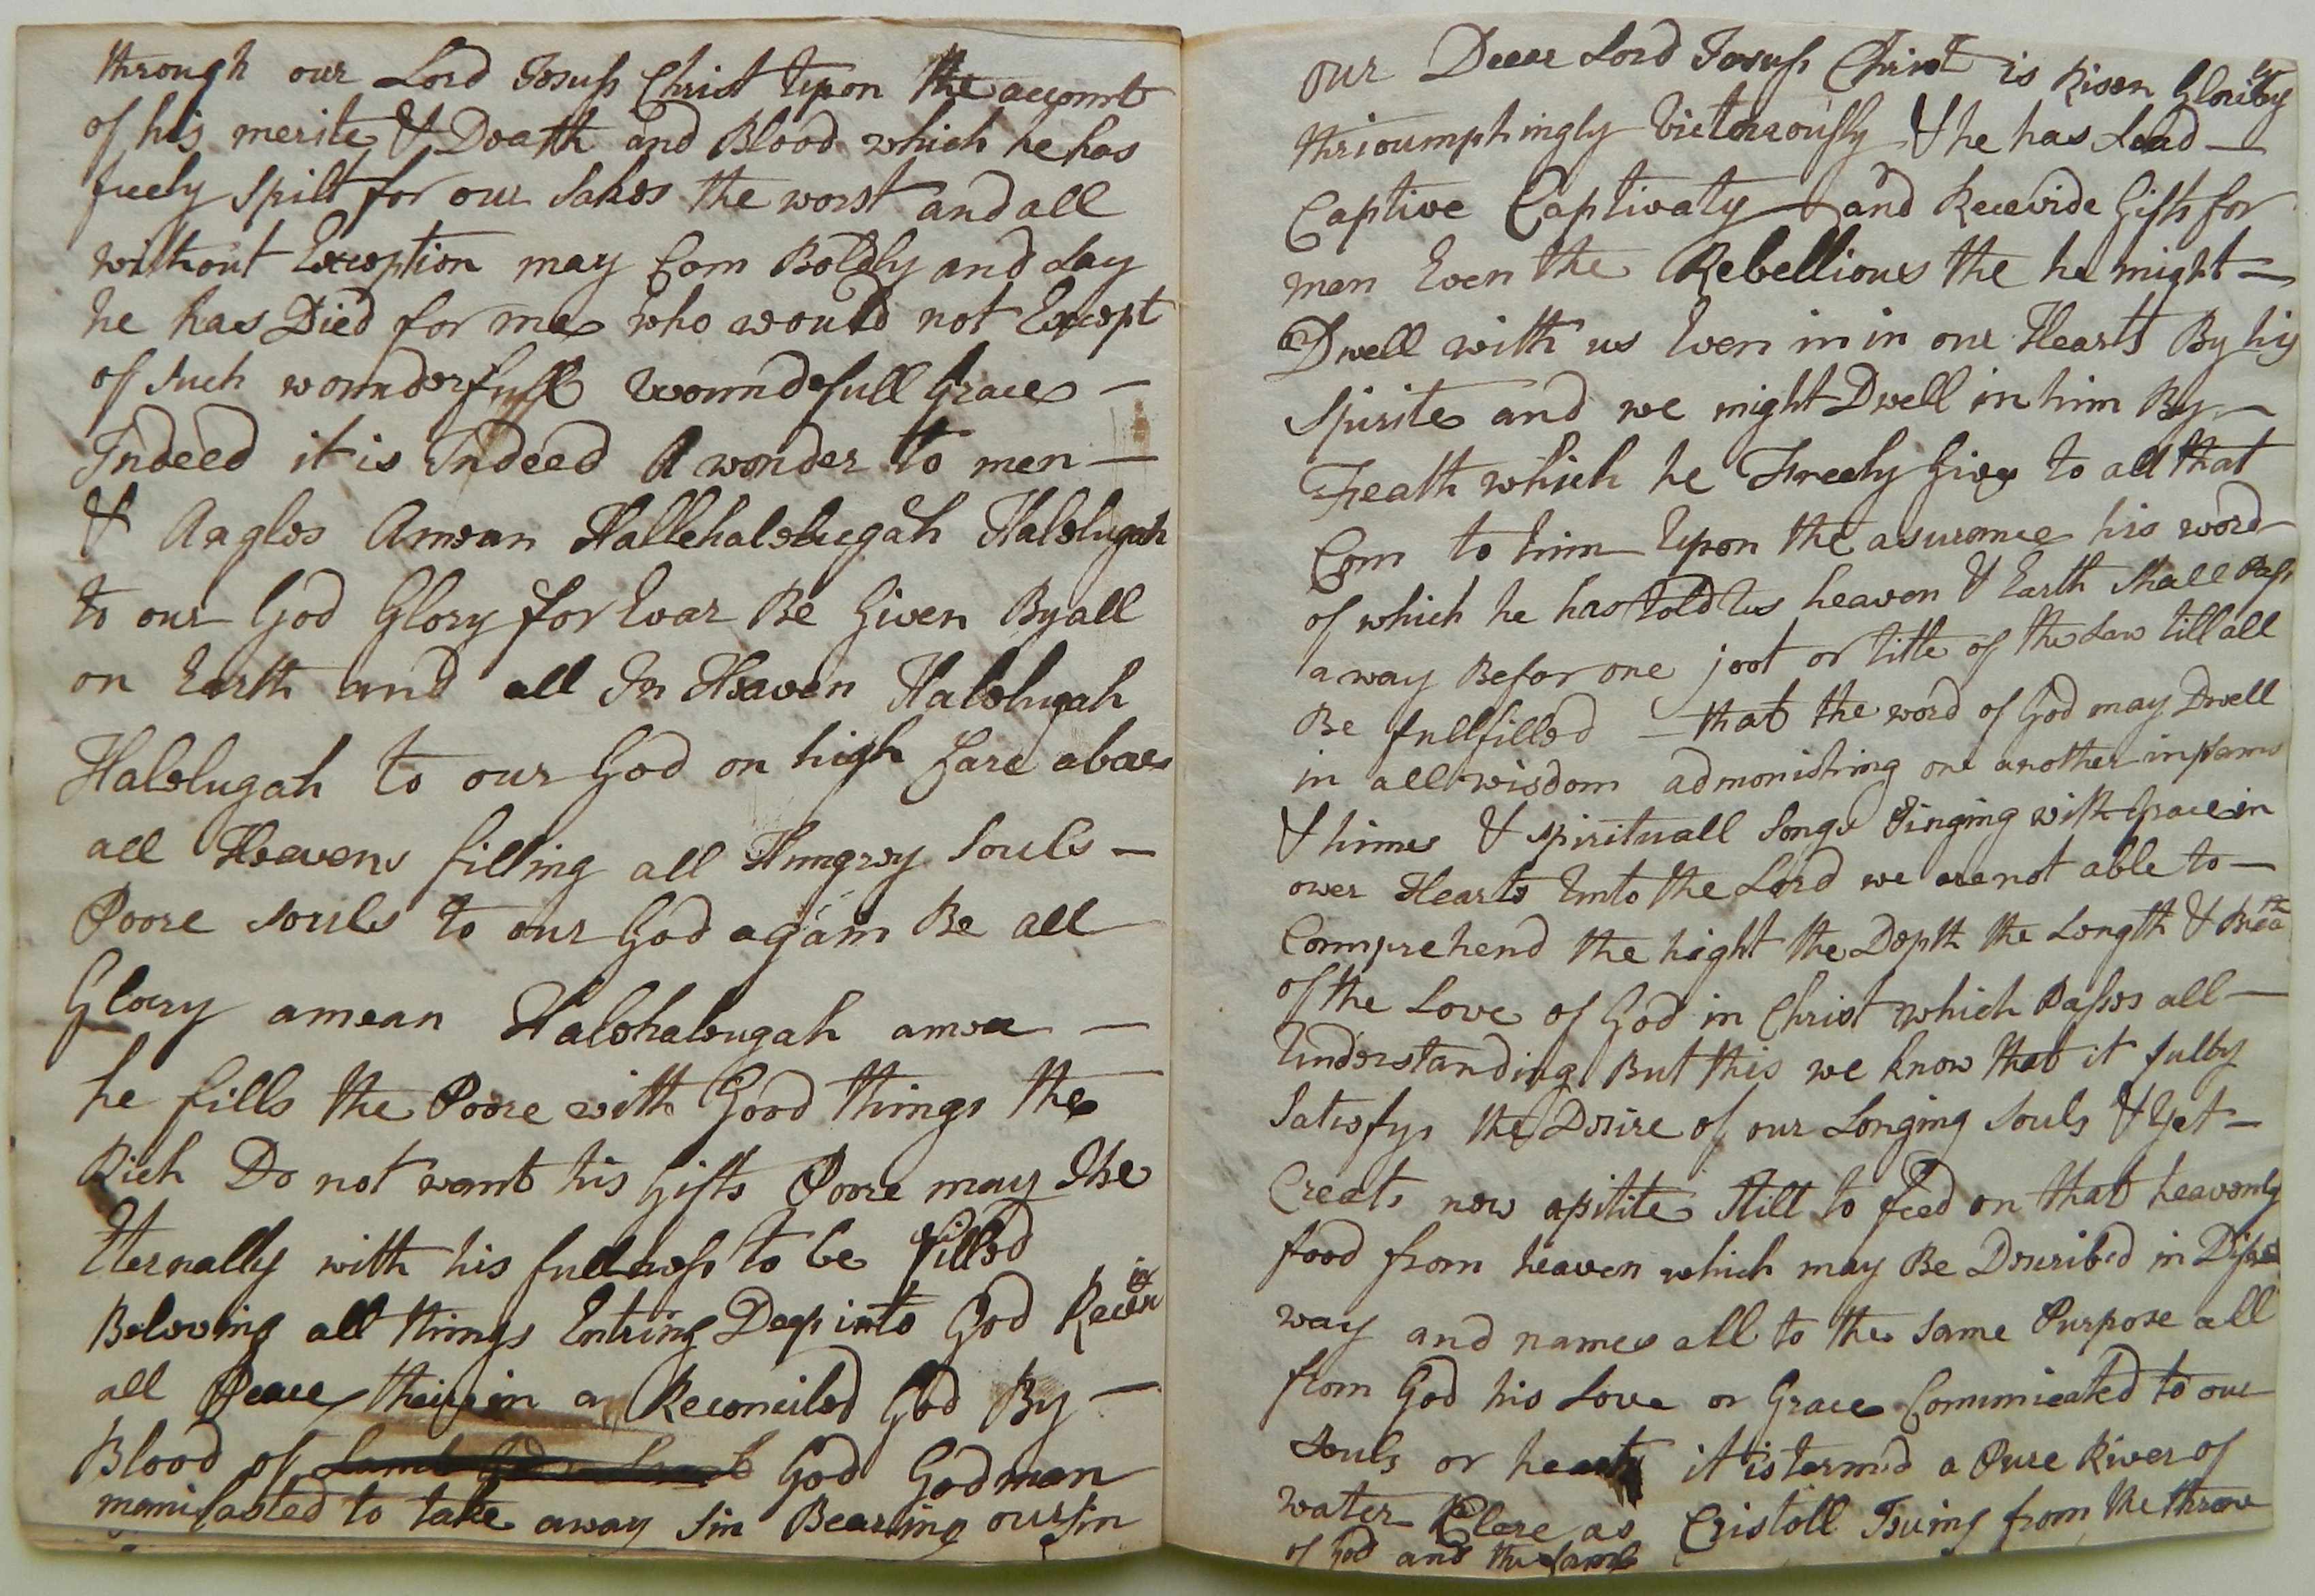 through our Lord Jesuss Christ Upon the account
of his merite & Death and Blood which he has
freely Spilt for our Sakes the worst and all
without Exception may Com Boldly and Say
he has Died for me who would not Except
of Such wounderfull woundefull Grace —
Indeed it is Indeed A wonder to men —
& Angles Amean Hallehalelugah Halelugah
to our God Glory for Evar Be Given By all
on Earth and all In Heaven Halelugah
Halelugah to our God on high fare above
all Heavens filling all Hungrey Souls —
Poore Souls to our God again Be all
Glory amean Halehaleugah amea —
he fills the Poore with Good things the
Rich Do not want his Gifts Poore may the
Eternally with his fullness to be filled
Beleveing all things Entring Deep into God Receiv ing
all Peace theirin a Reconciled God By —
Blood of God God man
manifasted to take away Sin Bearing our Sin
our Deear Lord Jesuss Christ is Risen Glorisly
thrioumphingly Victoreously & he has Lead —
Captive Captivaty and Recevide Gifts for
men Even the Rebellious the he might —
Dwell with us Even in in our Hearts By his
Spirite and we might Dwell in him By —
Feath which he Freely Gives to all that
Com to him Upon the asurance his word
of which he has told Us heaven & Earth Shall Pass
away Befor one joot or title of the Law till all
Be fullfilled — that the word of God may Dwell
in all wisdom admonishing one another in psams
& himes & spirituall Songs Singing with Grace in
ower Hearts Unto the Lord we are not able to —
Commprehend the hight the Depth the Length & Breath
of the Love of God in Christ which Passes all —
Understanding But this we know that it fulley
Satisfys the Desire of our Longing Souls & Yet —
Creats new apitite Still to feed on that heavenly
food from heaven which may Be Describ'd in
way and names all to the Same Purpose all
from God his Love or Grace Commicated to our
Souls or hearts it is term'd a Pure River of
water Clere as Cristoll Isuing from the throne
of God and the Lamb